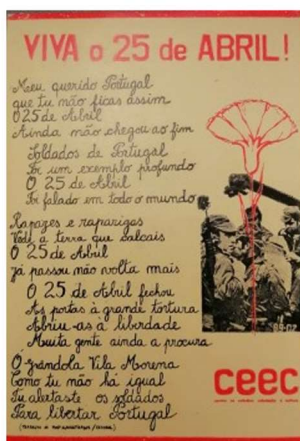 VIVA o 25 de ABRIL!
Meu querido Portugal
que tu não ficas assim
O 25 de Abril
Ainda não chegou ao fim
Soldados de Portugal
Foi um exemplo profundo
O 25 de Abril
Foi falado em todo o mundo
Rapazes e raparigas
Vede a terra que calcais
O 25 de Abril
já passou não volta mais
O 25 de Abril fechou
As portas à grande tortura
Abriu-as à liberdade
Muita gente ainda a procura
Ó grândola Vila Morena
Como tu não há igual
Tu alertaste os soldados
Para libertar Portugal
ceec